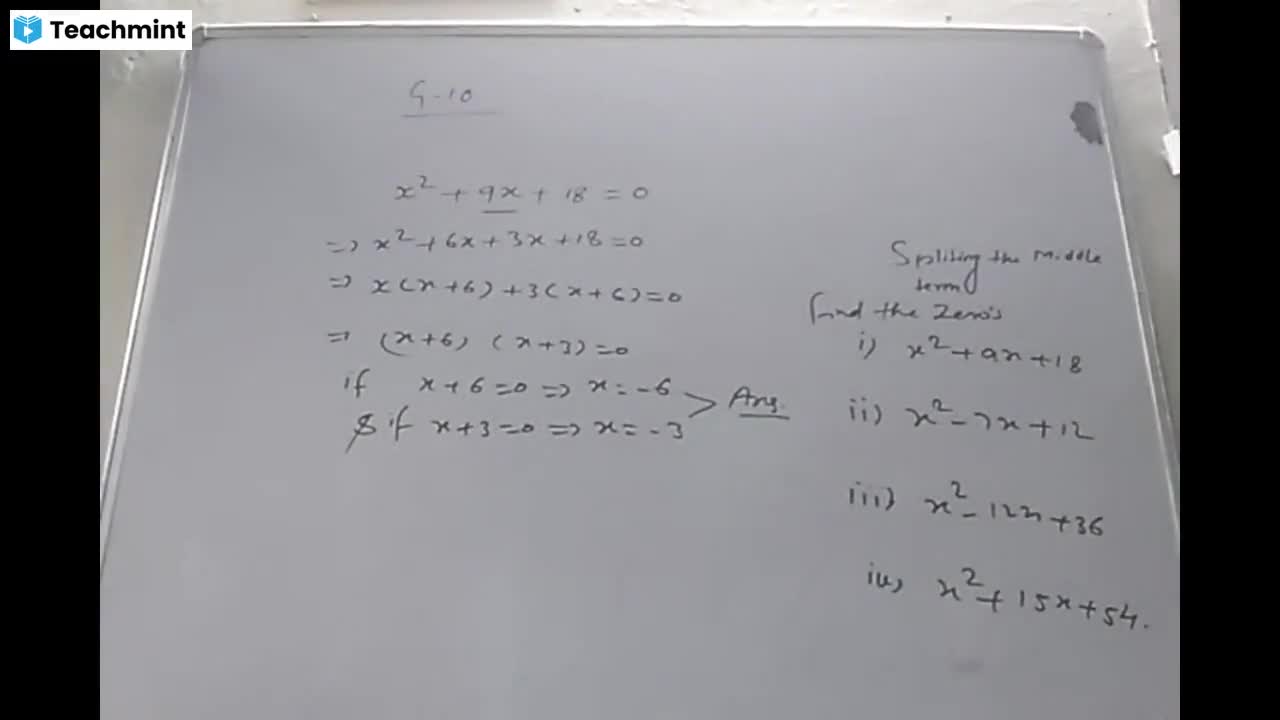 Teachmint
G-10
x² + 9x + 18 = 0
=> x² + 6x + 3x + 18 = 0
=> x(x+6) + 3(x+6) = 0
=> (x+6) (x+3) = 0
if x + 6 = 0 => x = -6
& if x + 3 = 0 => x = -3
Ans.
Spliting the Middle
term
find the Zero's
i) x² + 9x + 18
ii) x² - 7x + 12
iii) x² - 12x + 36
iv) x² + 15x + 54.